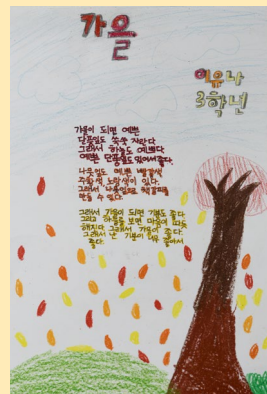 가을
이유나
3학년
가을이 되면 예쁜
단풍잎도 쑥쑥 자란다
그래서 하늘도 예쁘다
예쁜 단풍잎도 있어서 좋다.
나뭇잎도 예쁜 빨강색
주황색 노랑색이 있다.
그래서 나뭇잎으로 책갈피를
만들 수 있다.
그래서 가을이 되면 기분도 좋다
그리고 하늘을 보면 마음이 따뜻
해진다. 그래서 가을이 좋다
그래서 난 기분이 너무 좋아서
좋다.